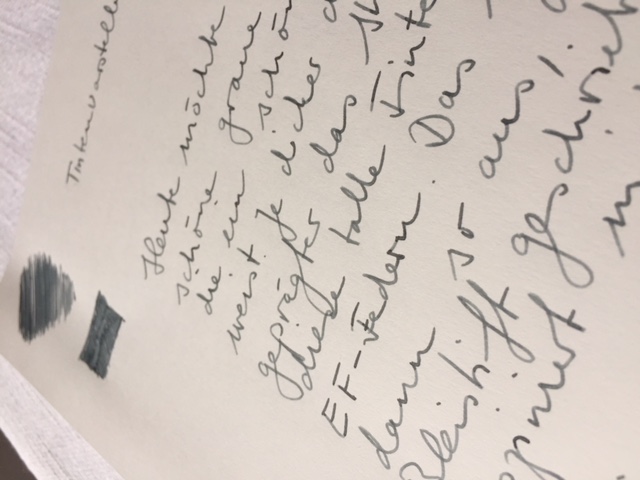 Tintenvorstell
Heute möchte
schöne graue
die ein schön
weist. Je dicker d
geprägter das Sh
diese tolle Tinte
EF-Federn. Das
dann so aus,
Bleistift geschrieb